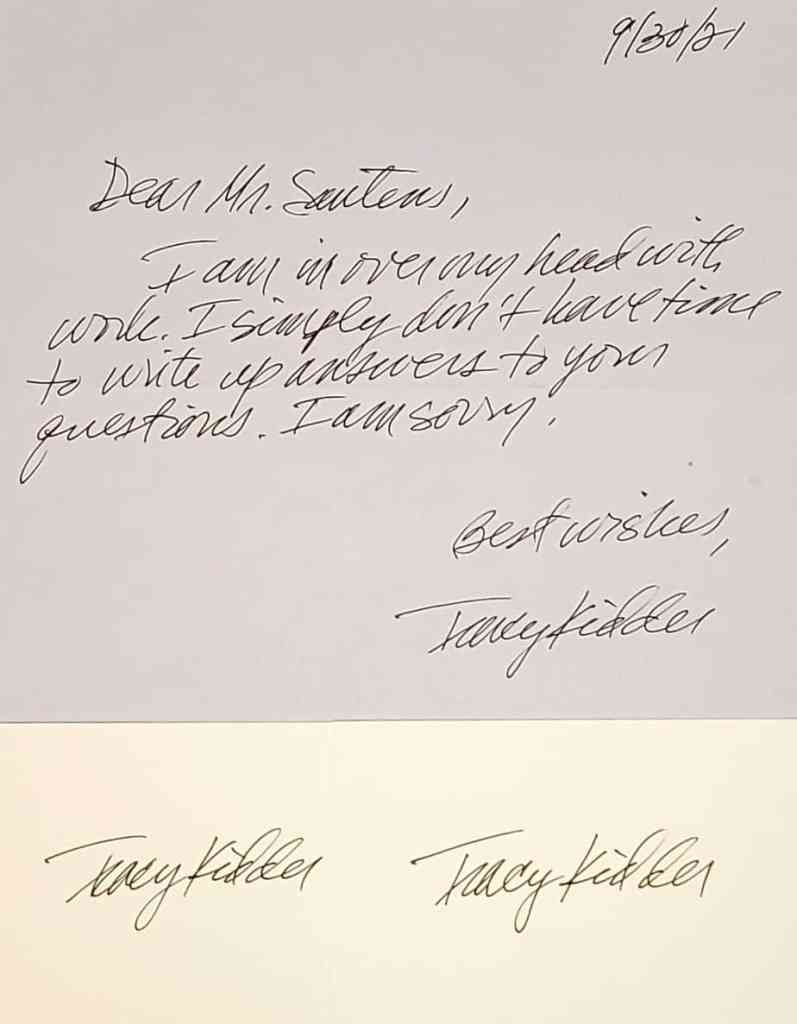 9/30/21
Dear Mr. Santens,
I am in over my head with
work. I simply don't have time
to write up answers to your
questions. I am sorry.
Best wishes,
Tracy Kidder
Tracy Kidder Tracy Kidder